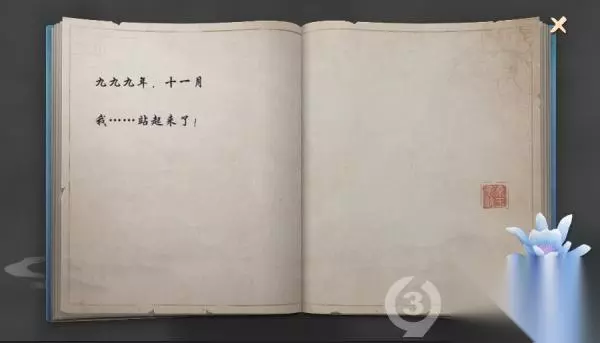 九九九年，十一月
我……站起来了！